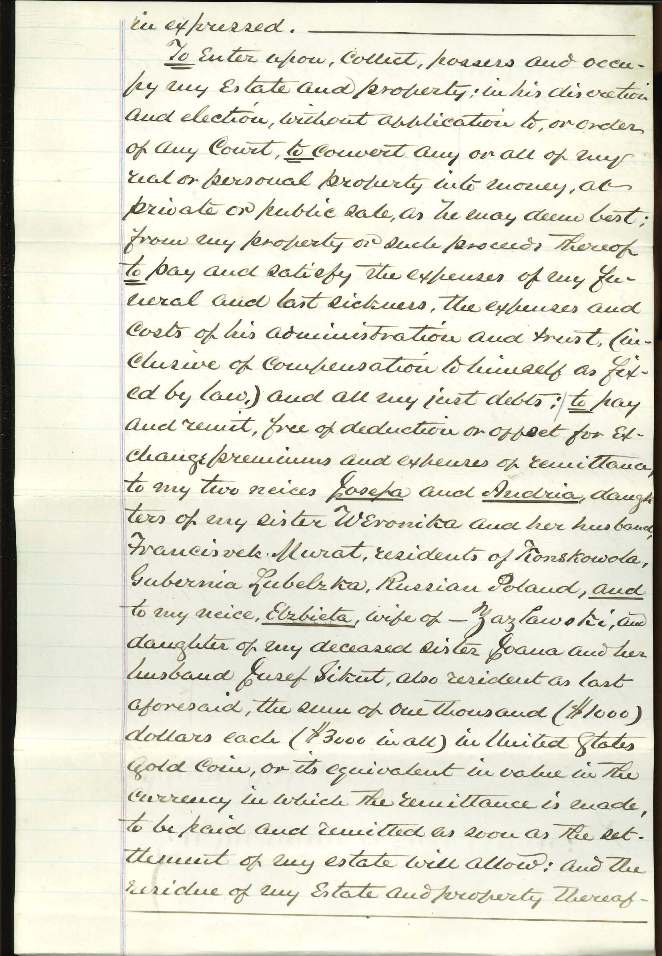 in expressed.
To Enter upon, Collect, possess and occu-
py my Estate and property; in his discretion
and election, without application to, or order
of any Court, to convert any or all of my
real or personal property into money, at
private or public sale, as he may deem best;
from my property or such proceeds thereof
to pay and satisfy the expenses of my fu-
neral and last sickness, the expenses and
costs of his administration and trust, (in-
clusive of compensation to himself as fix-
ed by law,) and all my just debts; to pay
and remit, free of deduction or offset for Ex-
change premiums and expenses of remittance,
to my two neices Josefa and Andria, daugh-
ters of my sister WEronika and her husband,
Francisvek Murat, residents of Konskowola,
Gubernia Lubelzka, Russian Poland, and
to my neice, Elzbieta, wife of — Zazlawski, and
daughter of my deceased sister Joana and her
husband Jusef Sikut, also resident as last
aforesaid, the sum of One thousand ($1000)
dollars each ($3000 in all) in United States
Gold Coin, or its equivalent in value in the
currency in which the remittance is made,
to be paid and remitted as soon as the set-
tlement of my estate will allow: and the
residue of my Estate and property thereaf-